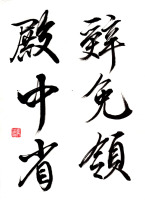 辭免領
殿中省